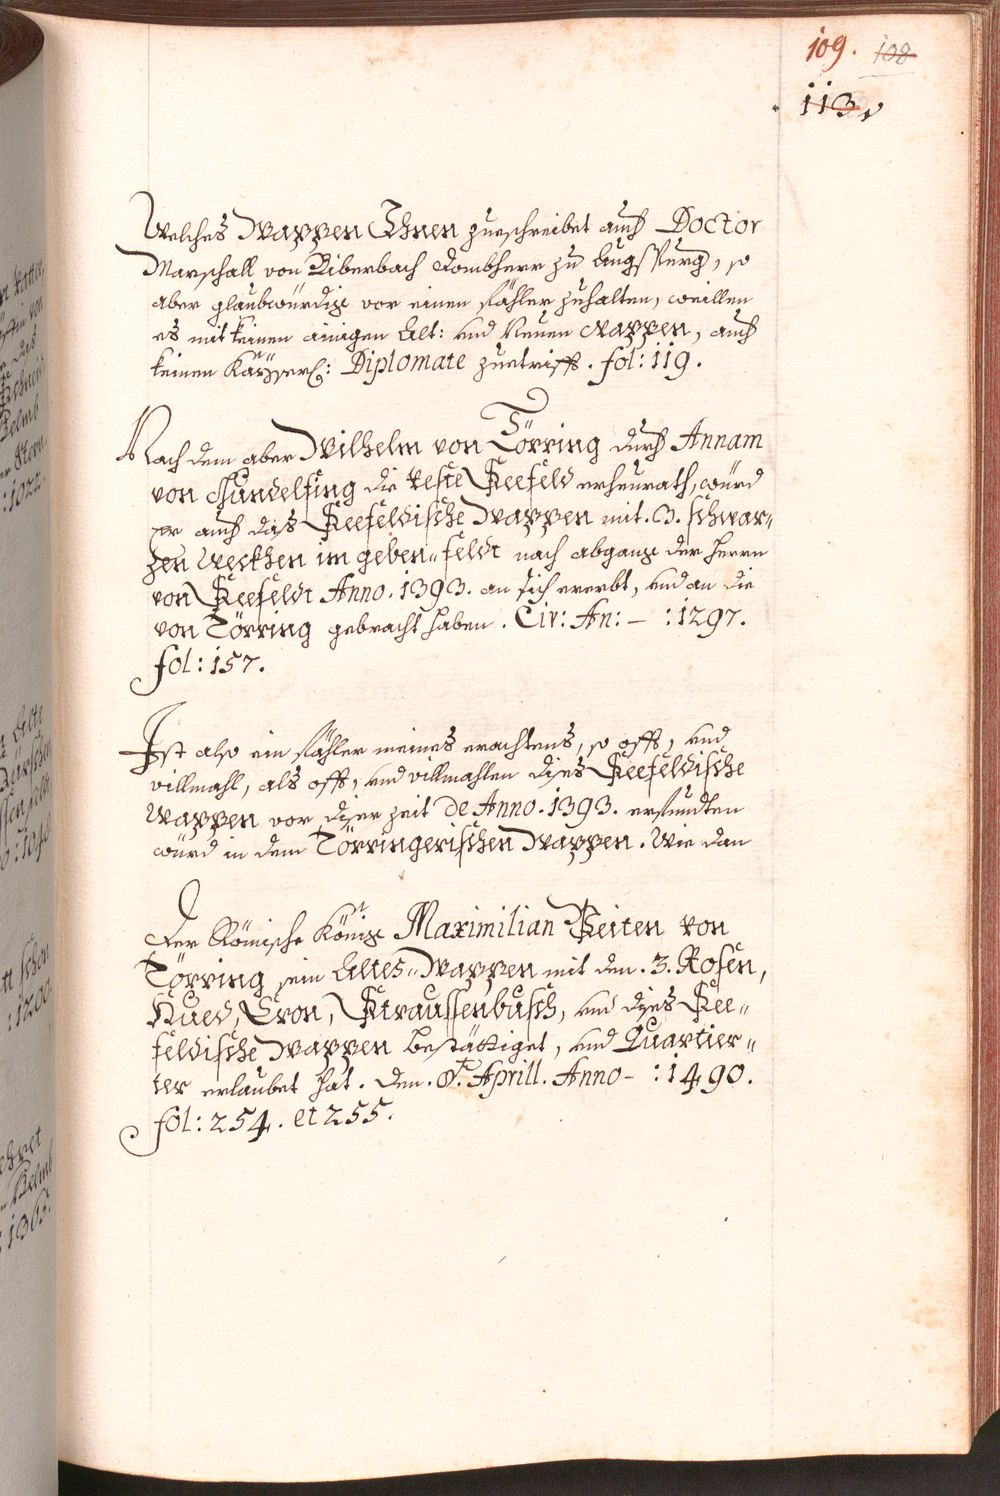 109. 108
113
Welches Wappen Ihnen zueschreibet auch Doctor
Marschall von Biberbach Dombherr zu Augspurg, so
aber glaubwürdig vor einen fähler zuhalten, weillen
es mit keinen ainigen Alt: und Neuen Wappen, auch
keinen Kayserl: Diplomate zuetrifft. fol: 119.
Nach dem aber Wilhelm von Törring durch Annam
von Gundelfing die Veste Seefeld erheurath, würd
er auch das Seefeldische Wappen mit .3. schwar„
zen Weckhen im geben„ feldt nach abgang der Herrn
von Seefeldt Anno. 1393. an sich ererbt, und an die
von Törring gebracht haben. Cir: An: – : 1297.
fol: 157.
Ist also ein fähler meines erachtens, so offt, und
villmahl, als offt, und villmahlen dises Seefeldische
Wappen vor diser zeit de Anno. 1393. erfundten
würd in dem Törringerischen Wappen. Wie dan
Der Römische König Maximilian Seiten von
Törring sein Altes„ Wappen mit den .3. Rosen,
Hued, Cron, Straussenbusch, und dises See„
feldische Wappen bestättiget, und Quartier„
ter erlaubet hat. den. 8t. Aprill. Anno – : 1490.
fol: 254. et 255.